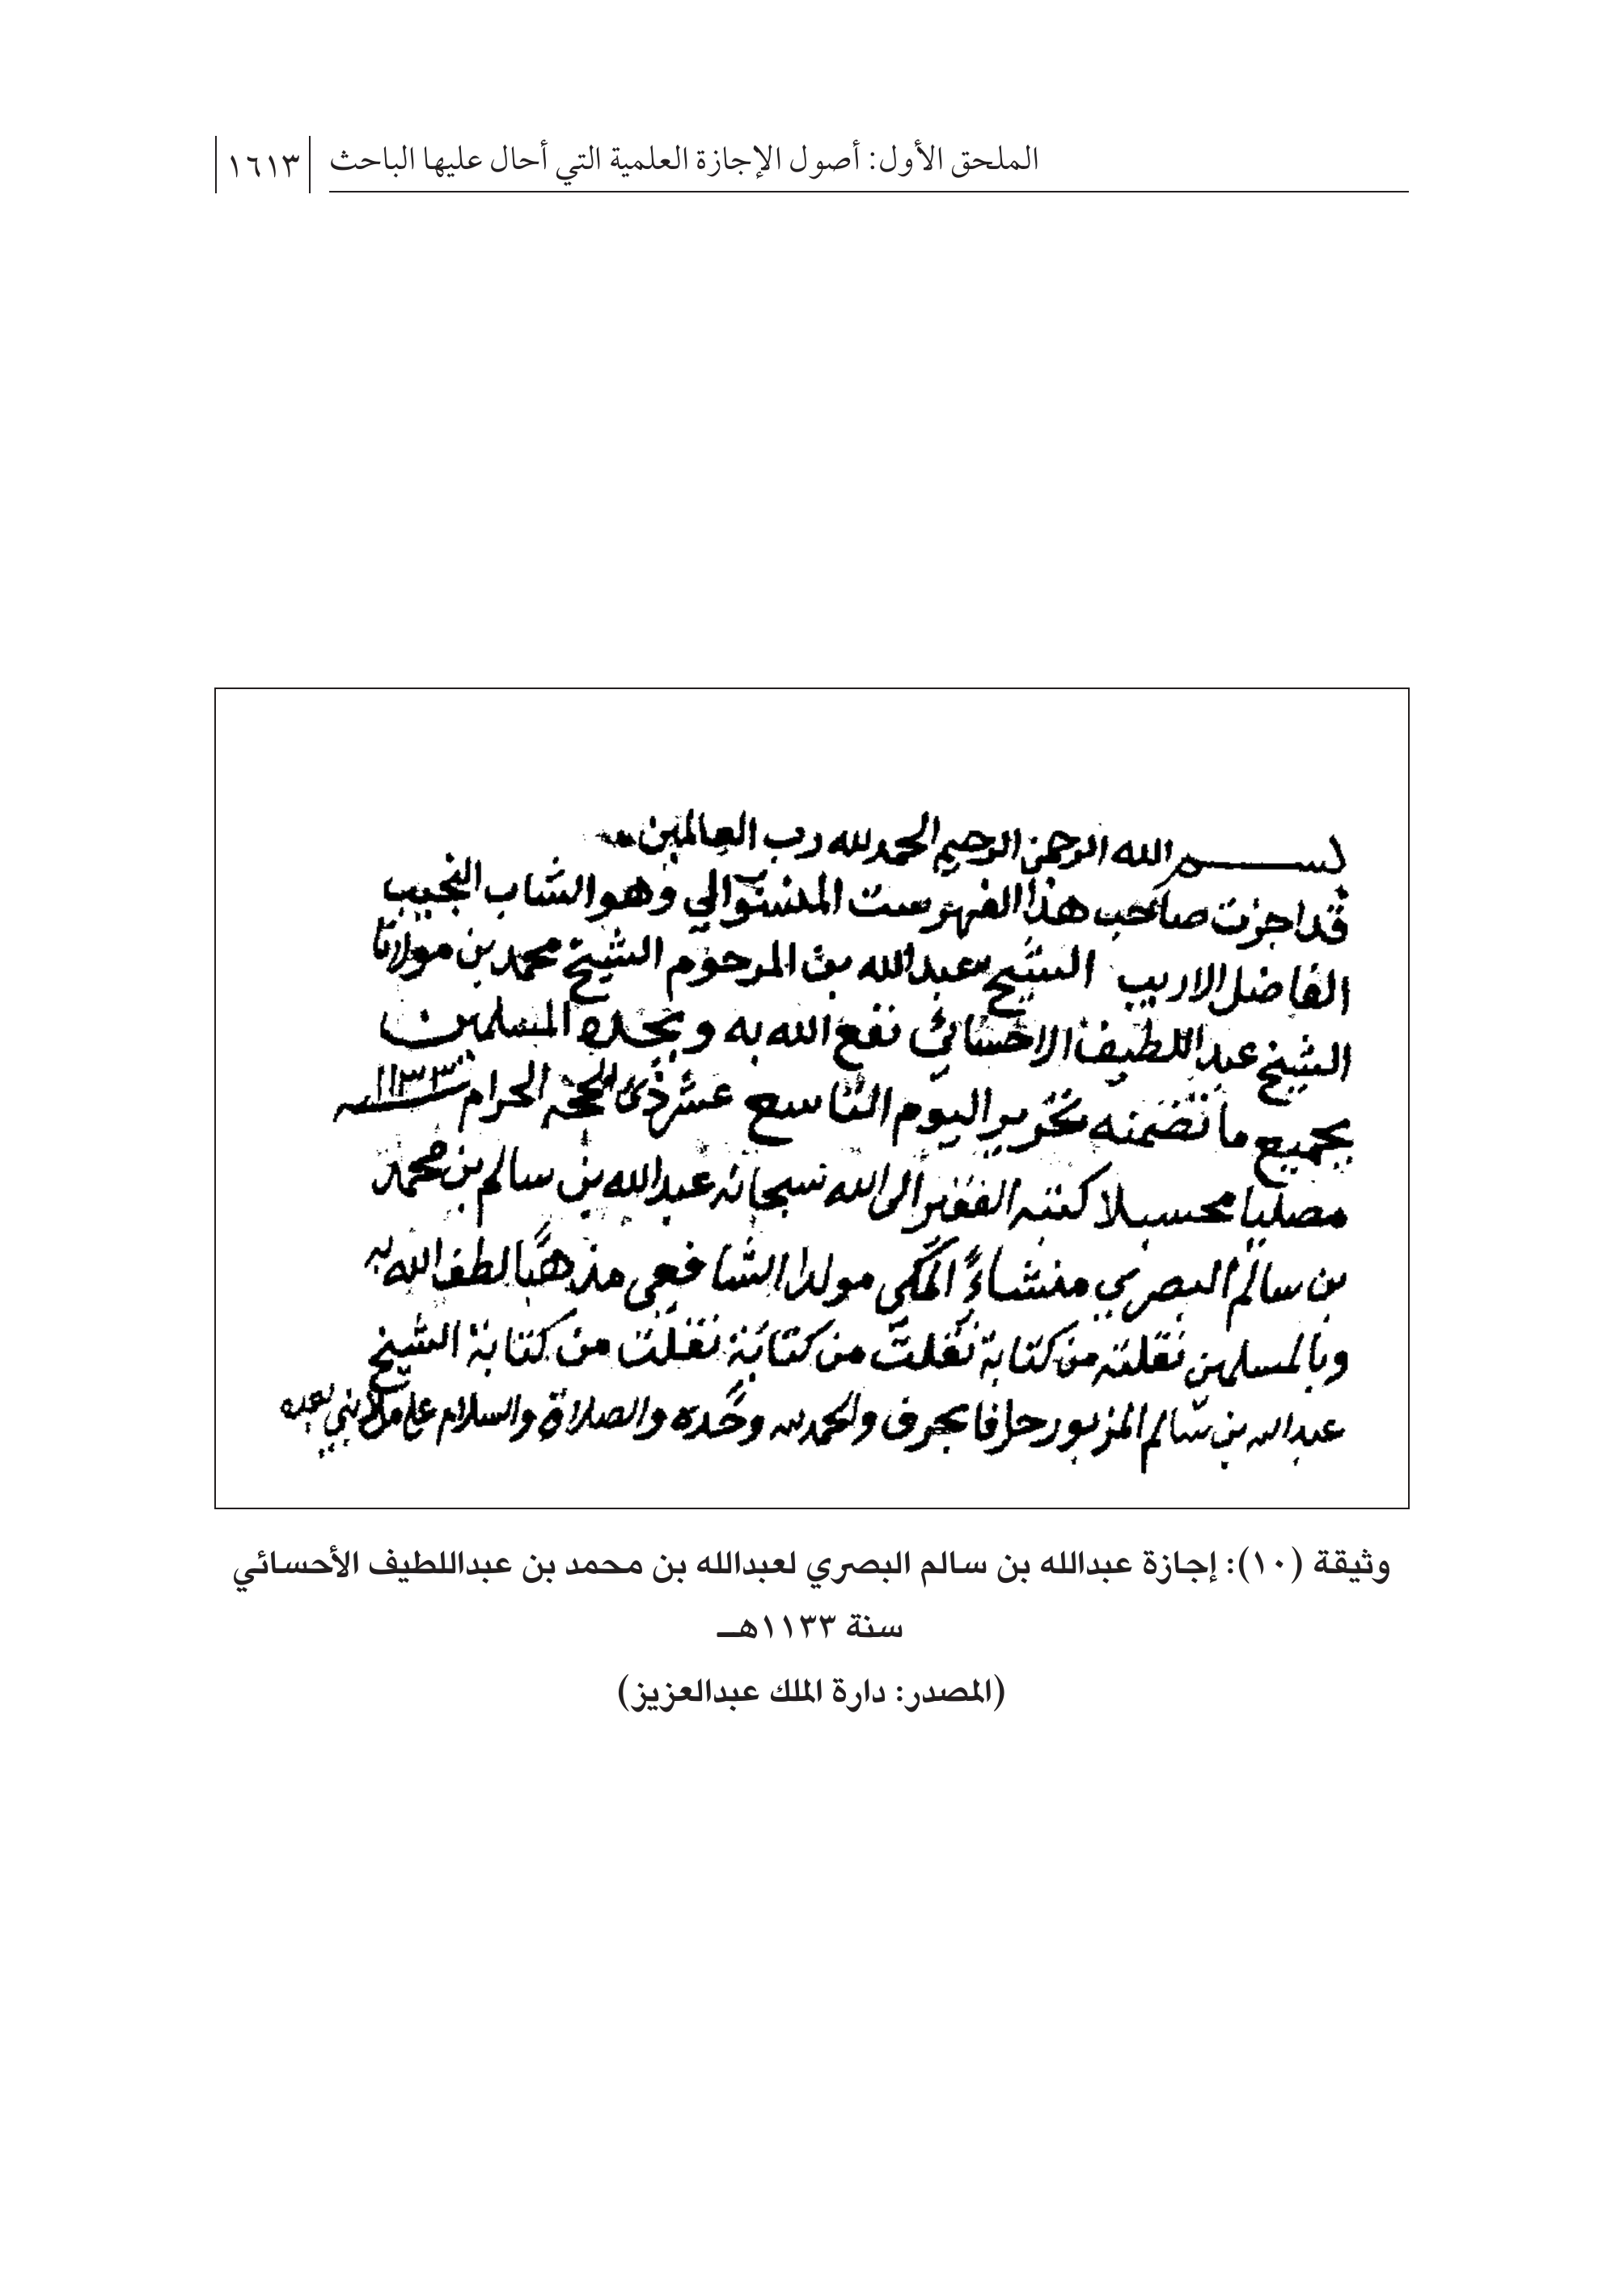 الملحق الأول: أصول الإجازة العلمية التي أحال عليها الباحث ١٦١٣
بسم الله الرحمن الرحيم الحمد لله رب العالمين
قد اجزت صاحب هذا الفهرست المنسوب الي وهو الشاب النجيب
الفاضل الاريب الشيخ عبدالله بن المرحوم الشيخ محمد بن مولانا
الشيخ عبداللطيف الاحسائي نفع الله به وبجده المسلمين
بجميع ما تضمنه تحرير اليوم التاسع عشر ذي الحجه الحرام سنة ١١٣٣
مصليا محسبلا كتبه الفقير الى الله سبحانه عبدالله بن سالم بن محمد
بن سالم البصري منشاءً المكي مولدا الشافعي مذهبًا لطف الله به
وبالمسلمين نقلته من كتابة نقلت من كتابة نقلت من كتابة الشيخ
عبدالله بن سالم المزبور حرفا بحرف والحمد لله وحده والصلاة والسلام على من لا نبي بعده
وثيقة (١٠): إجازة عبدالله بن سالم البصري لعبدالله بن محمد بن عبداللطيف الأحسائي
سنة ١١٣٣هـ
(المصدر: دارة الملك عبدالعزيز)